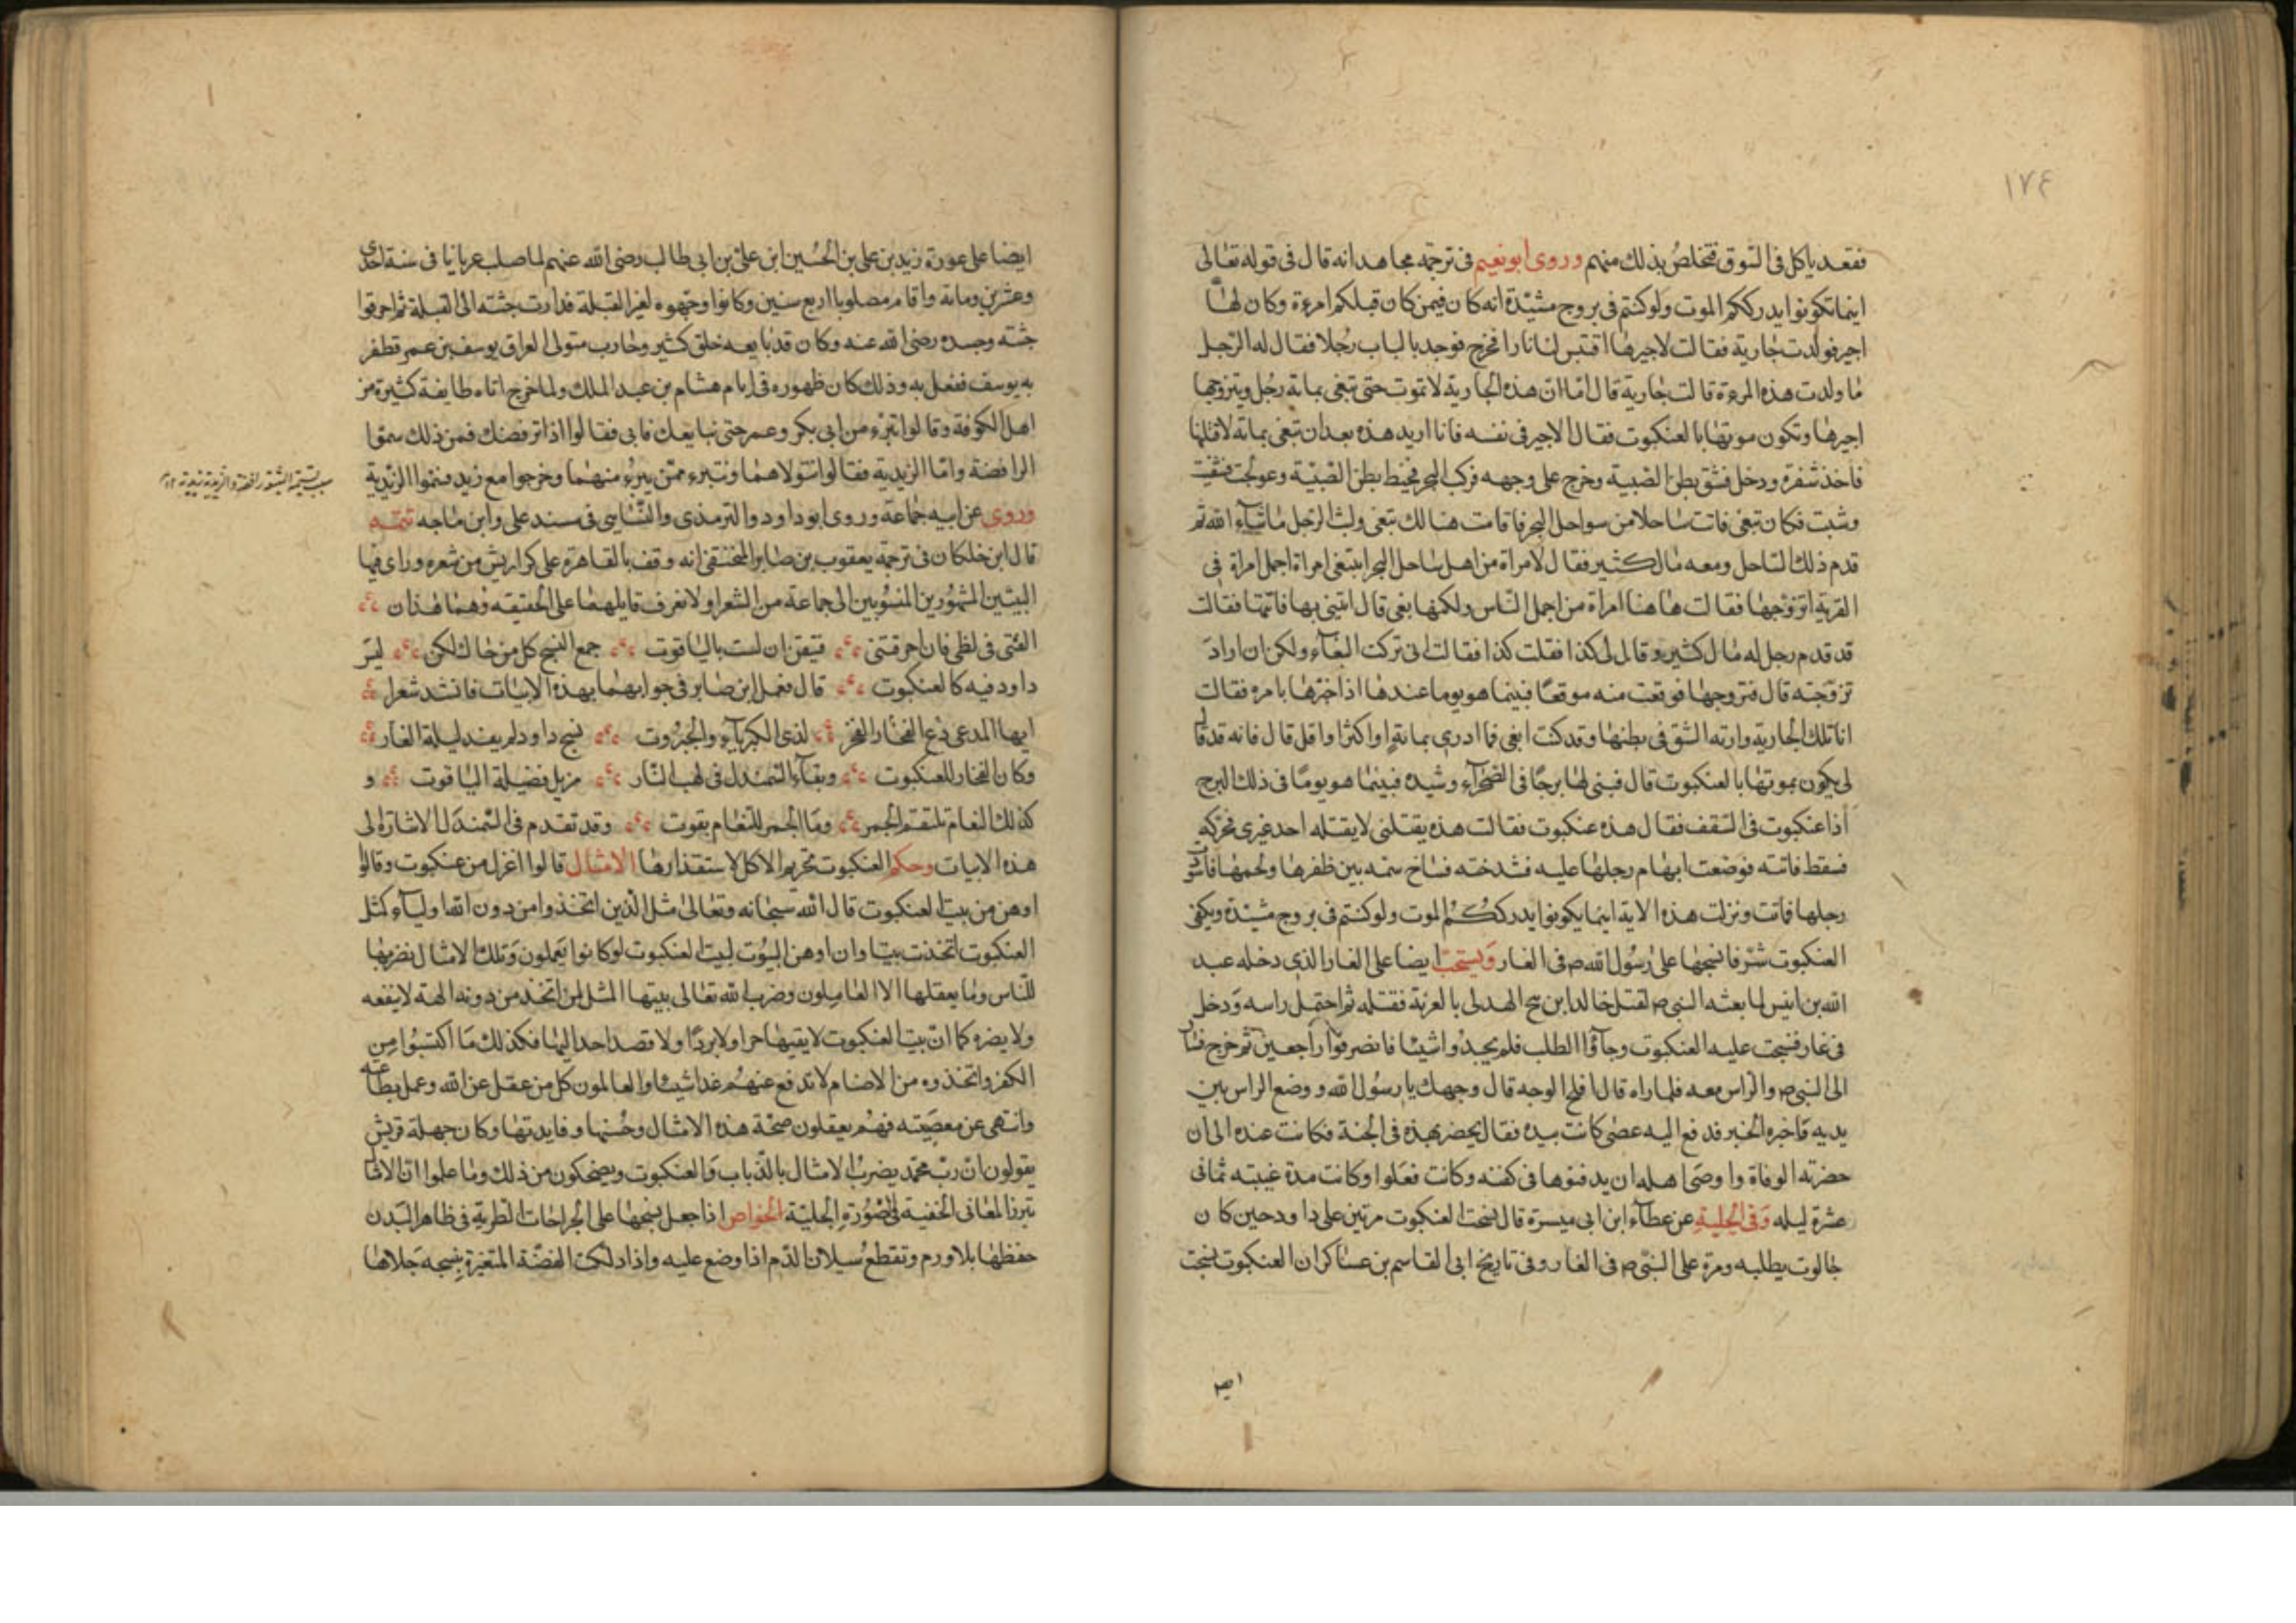 ١٧٤
فقعد ياكل فى السوق فتخلص بذلك منهم وروى ابو نعيم فى ترجمة مجاهد انه قال فى قوله تعالى
اينما تكونوا يدرككم الموت ولو كنتم فى بروج مشيّدة انه كان فيمن كان قبلكم امرءة وكان لها
اجير فولدت جارية فقالت لاجيرها اقتبس لنا نارا فخرج فوجد بالباب رجلا فقال له الرجل
ما ولدت هذه المرءة قالت جارية قال اما ان هذه الجارية لا تموت حتى تبغى بماتة رجل ويتزوجها
اجيرها وتكون موتها بالعنكبوت فقال الاجير فى نفسه فانا اريد هذه بعد ان تبغى بماتة لاقتلنها
فاخذ شفرة ودخل فشق بطن الصبية وخرج على وجهه فركب البحر فخيط بطن الصبيّة وعولجت فشفيت
وشبت فكان تبغى فاتت ساحلا من سواحل البحر فاقامت هنالك تبغى ولبث الرجل ما شآء الله ثم
قدم ذلك الساحل ومعه مال كثير فقال لامراة من اهل ساحل البحر ابتغى امراة اجمل امراة فى
القرية اتزوجها فقالت هاهنا امراة من اجمل الناس ولكنها بغى قال ائتينى بها فاتتها فقالت
قد قدم رجل له مال كثير وقال لى كذا فقلت كذا فقالت انى تركت البغآء ولكن ان اراد
تزوجته قال فتزوجها فوقعت منه موقعا فبينما هو يوما عندها اذ اخبرها بامره فقالت
انا تلك الجارية وارته الشق فى بطنها وقد كنت ابغى فما ادرى بماية او اكثر او اقل قال فانه قد قال
لى يكون موتها بالعنكبوت قال فبنى لها برجًا فى الصحرآء وشيده فبينما هو يومًا فى ذلك البرج
اذا عنكبوت فى السقف فقال هذه عنكبوت فقالت هذه يقتلنى لا يقتله احد غيرى فحركته
فسقط فاتته فوضعت ابهام رجلها عليه فشدخته فساخ سمه بين ظفرها ولحمها فاسودت
رجلها فماتت ونزلت هذه الاية اينما يكونوا يدرككم الموت ولو كنتم فى بروج مشيّدة ويكفى
العنكبوت شرفا نسجها على رسول الله ص فى الغار ويستحب ايضا على الغار الذى دخله عبد
الله بن انيس لما بعثه النبى ص لقتل خالد ابن نبيح الهدلى بالعرنة فقتله ثم احتمل راسه ودخل
فى غار فنسجت عليه العنكبوت وجآؤا الطلب فلم يجدوا شيئا فانصرفوا راجعين ثم خرج فسار
الى النبى ص والراس معه فلما راه قال افلح الوجه قال وجهك يا رسول الله ووضع الراس بين
يديه فاخبره الخبر فدفع اليه عصى كانت بيده فقال يحضر بهذه فى الجنة فكانت عنده الى ان
حضرته الوفاة واوصى اهله ان يدفنوها فى كفنه وكانت فعلوا وكانت مدة غيبته ثمانى
عشرة ليله وفى الحلية عن عطآء ابن ابى ميسرة قال نسجت العنكبوت مرتين على داود حين كان
جالوت يطلبه ومرة على النبى ص فى الغار وفى تاريخ ابى القاسم بن عساكر ان العنكبوت نسجت
ايضا
ايضا على عورة زيد بن على بن الحسين ابن على بن ابى طالب رضى الله عنهم لما صلب عريانا فى سنة احدى
وعشرين وماية واقام مصلوبا اربع سنين وكانوا وجهوه لغير القبلة فدارت جثته الى القبلة ثم احرقوا
جثته وجسده رضى الله عنه وكان قد بايعه خلق كثير وحارب متولى العراق يوسف بن عمر فظفر
به يوسف ففعل به وذلك كان ظهوره فى ايام هشام بن عبد الملك ولما خرج اتاه طايفة كثيرة من
اهل الكوفة وقالوا تبرء من ابى بكر وعمر حتى نبايعك فابى فقالوا اذا نرفضك فمن ذلك سموا
الرافضة واما الزيدية فقالوا نتولاهما ونتبرء ممّن يبرء منهما وخرجوا مع زيد فسموا الزيدية
وروى عن ابيه جماعة وروى ابو داود والترمذى والنساى فى مسند على وابن ماجه تتمه
قال ابن خلكان فى ترجمة يعقوب بن صابر المنجنيقى انه وقف بالقاهرة على كراريش من شعره وراى فيها
البيتين المشهورين المنسوبين الى جماعة من الشعرا ولا نعرف قايلهما على الحقيقه وهما هذان
القنى فى لظى فان احرقتنى فتيقن ان لست بالياقوت جمع النسج كل من حاك لكن ليس
داود فيه كالعنكبوت قال فعمل ابن صابر فى جوابهما بهذه الابيات فانشد شعرا
ايها المدعى دع الفخار الفخر لذى الكبريآء والجبروت نسج داود لم يفد ليلة الغار
وكان الفخار للعنكبوت وبقآء السمندل فى لهب النار مزيل فضيلة الياقوت و
كذلك النعام تلتقم الجمر وما الجمر للنعام بقوت وقد تقدم فى السمندل الاشارة الى
هذه الابيات وحكم العنكبوت تحريم الاكل لاستقذارها الامثال قالوا اغزل من عنكبوت وقالوا
اوهن من بيت العنكبوت قال الله سبحانه وتعالى مثل الذين اتخذوا من دون الله اوليآء كمثل
العنكبوت اتخذت بيتا وان اوهن البيوت لبيت العنكبوت لو كانوا يعلمون وتلك الامثال نضربها
للناس وما يعقلها الا العاملون وضرب الله تعالى بيتها المثل لمن اتخذ من دونه الهة لا ينفعه
ولا يضره كما ان بيت العنكبوت لا يقيها حرا ولا بردًا ولا قصد احد اليها فكذلك ما اكتسبوا من
الكفر واتخذوه من الاصنام لا تدفع عنهم غدا شيئا والعالمون كل من عقل عن الله وعمل بطاعته
وانتهى عن معصيته فهم يعقلون صحّة هذه الامثال وحسنها وفايدتها وكان جهلة قريش
يقولون ان رب محمد يضرب الامثال بالذباب والعنكبوت ويضحكون من ذلك وما علموا ان الامثال
تبرز المعانى الخفية فى الصورة الجلية الخواص اذا جعل نسجها على الجراحات الطرية فى ظاهر البدن
حفظها بلا ورم وتقطع سيلان الدم اذا وضع عليه واذا دلكت الفضّة المتغيرة بنسجه جلاها